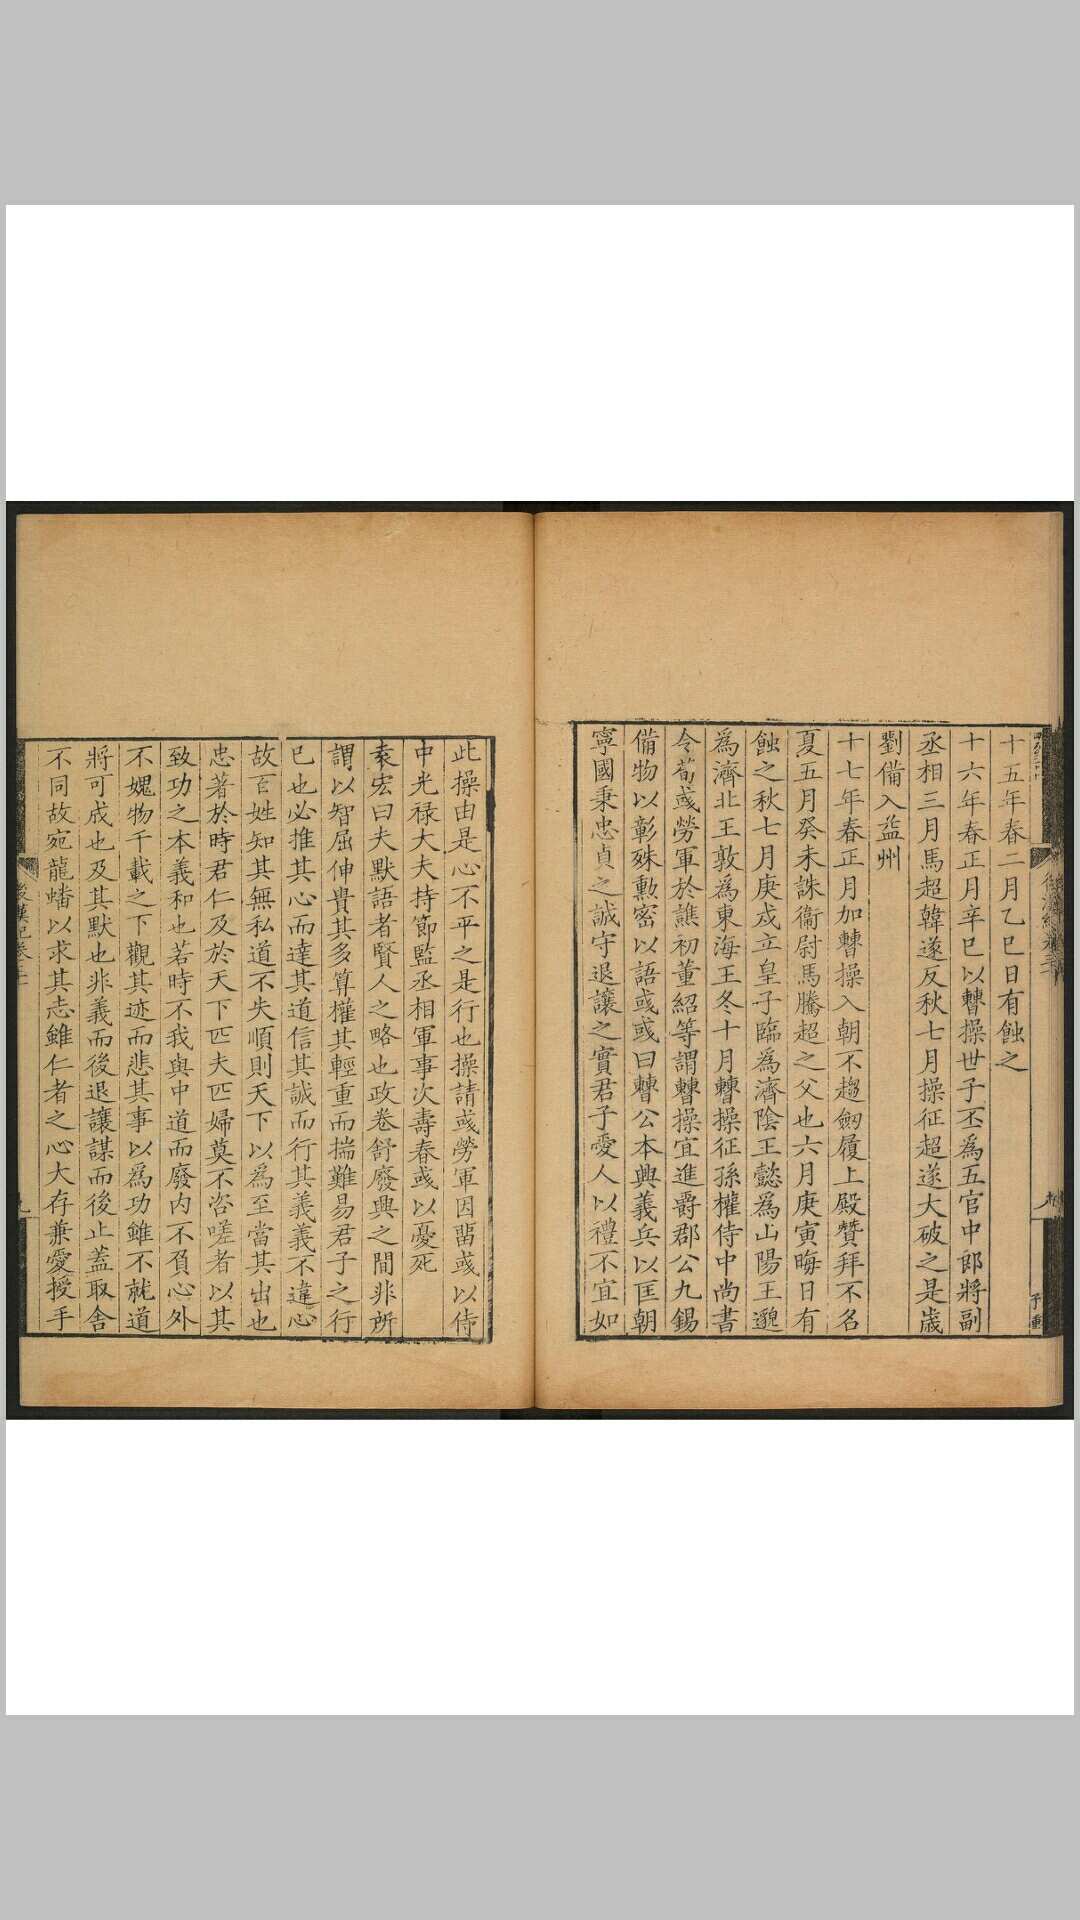 十五年春二月乙巳日有蝕之
十六年春正月辛巳以曹操世子丕爲五官中郎將副
丞相三月馬超韓遂反秋七月操征超遂大破之是歲
劉備入益州
十七年春正月加曹操入朝不趨劔履上殿贊拜不名
夏五月癸未誅衞尉馬騰超之父也六月庚寅晦日有
蝕之秋七月庚戍立皇子臨爲濟陰王懿爲山陽王邈
爲濟北王敦爲東海王冬十月曹操征孫權侍中尚書
令荀彧勞軍於譙初董紹等謂曹操宜進爵郡公九錫
備物以彰殊勲密以語彧彧曰曹公本興義兵以匡朝
寧國秉忠貞之誠守退讓之實君子愛人以禮不宜如
此操由是心不平之是行也操請彧勞軍因留彧以侍
中光禄大夫持節監丞相軍事次壽春彧以憂死
袁宏曰夫默語者賢人之略也政卷舒廢興之間非所
謂以智屈伸貴其多算權其輕重而揣難易君子之行
巳也必推其心而達其道信其誠而行其義義不違心
故百姓知其無私道不失順則天下以爲至當其出也
忠著於時君仁及於天下匹夫匹婦莫不咨嗟者以其
致功之本義和也若時不我與中道而廢内不負心外
不媿物千載之下觀其迹而悲其事以爲功雖不就道
將可成也及其默也非義而後退讓謀而後止蓋取舍
不同故宛龍蟠以求其志雖仁者之心大存兼愛授手
後漢紀卷三十
九